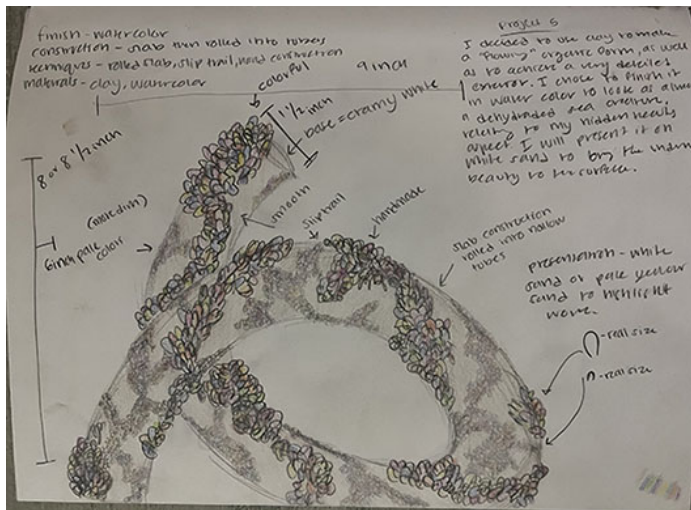 finish - watercolor
construction - slab then rolled into tubes
techniques - rolled slab, slip trail, hand construction
materials - clay, watercolor
colorful
9 inch
1 1/2 inch
base = cramy white
8 or 8 1/2 inch
6 inch pale color
smooth
sliptrail
handmade
slab construction
rolled into hollow
tubes
Project 5
I decided to use clay to make
a "flowing" organic form, as well
as to achieve a very detailed
exterior. I chose to finish it
in water color to look as almost
a dehydraded sea creature,
relating to my hidden
aspect. I will present it on
white sand to bring the
beauty to the surface.
presentation - white
sand or pale yellow
sand to highlight
work.
- real size
- real size